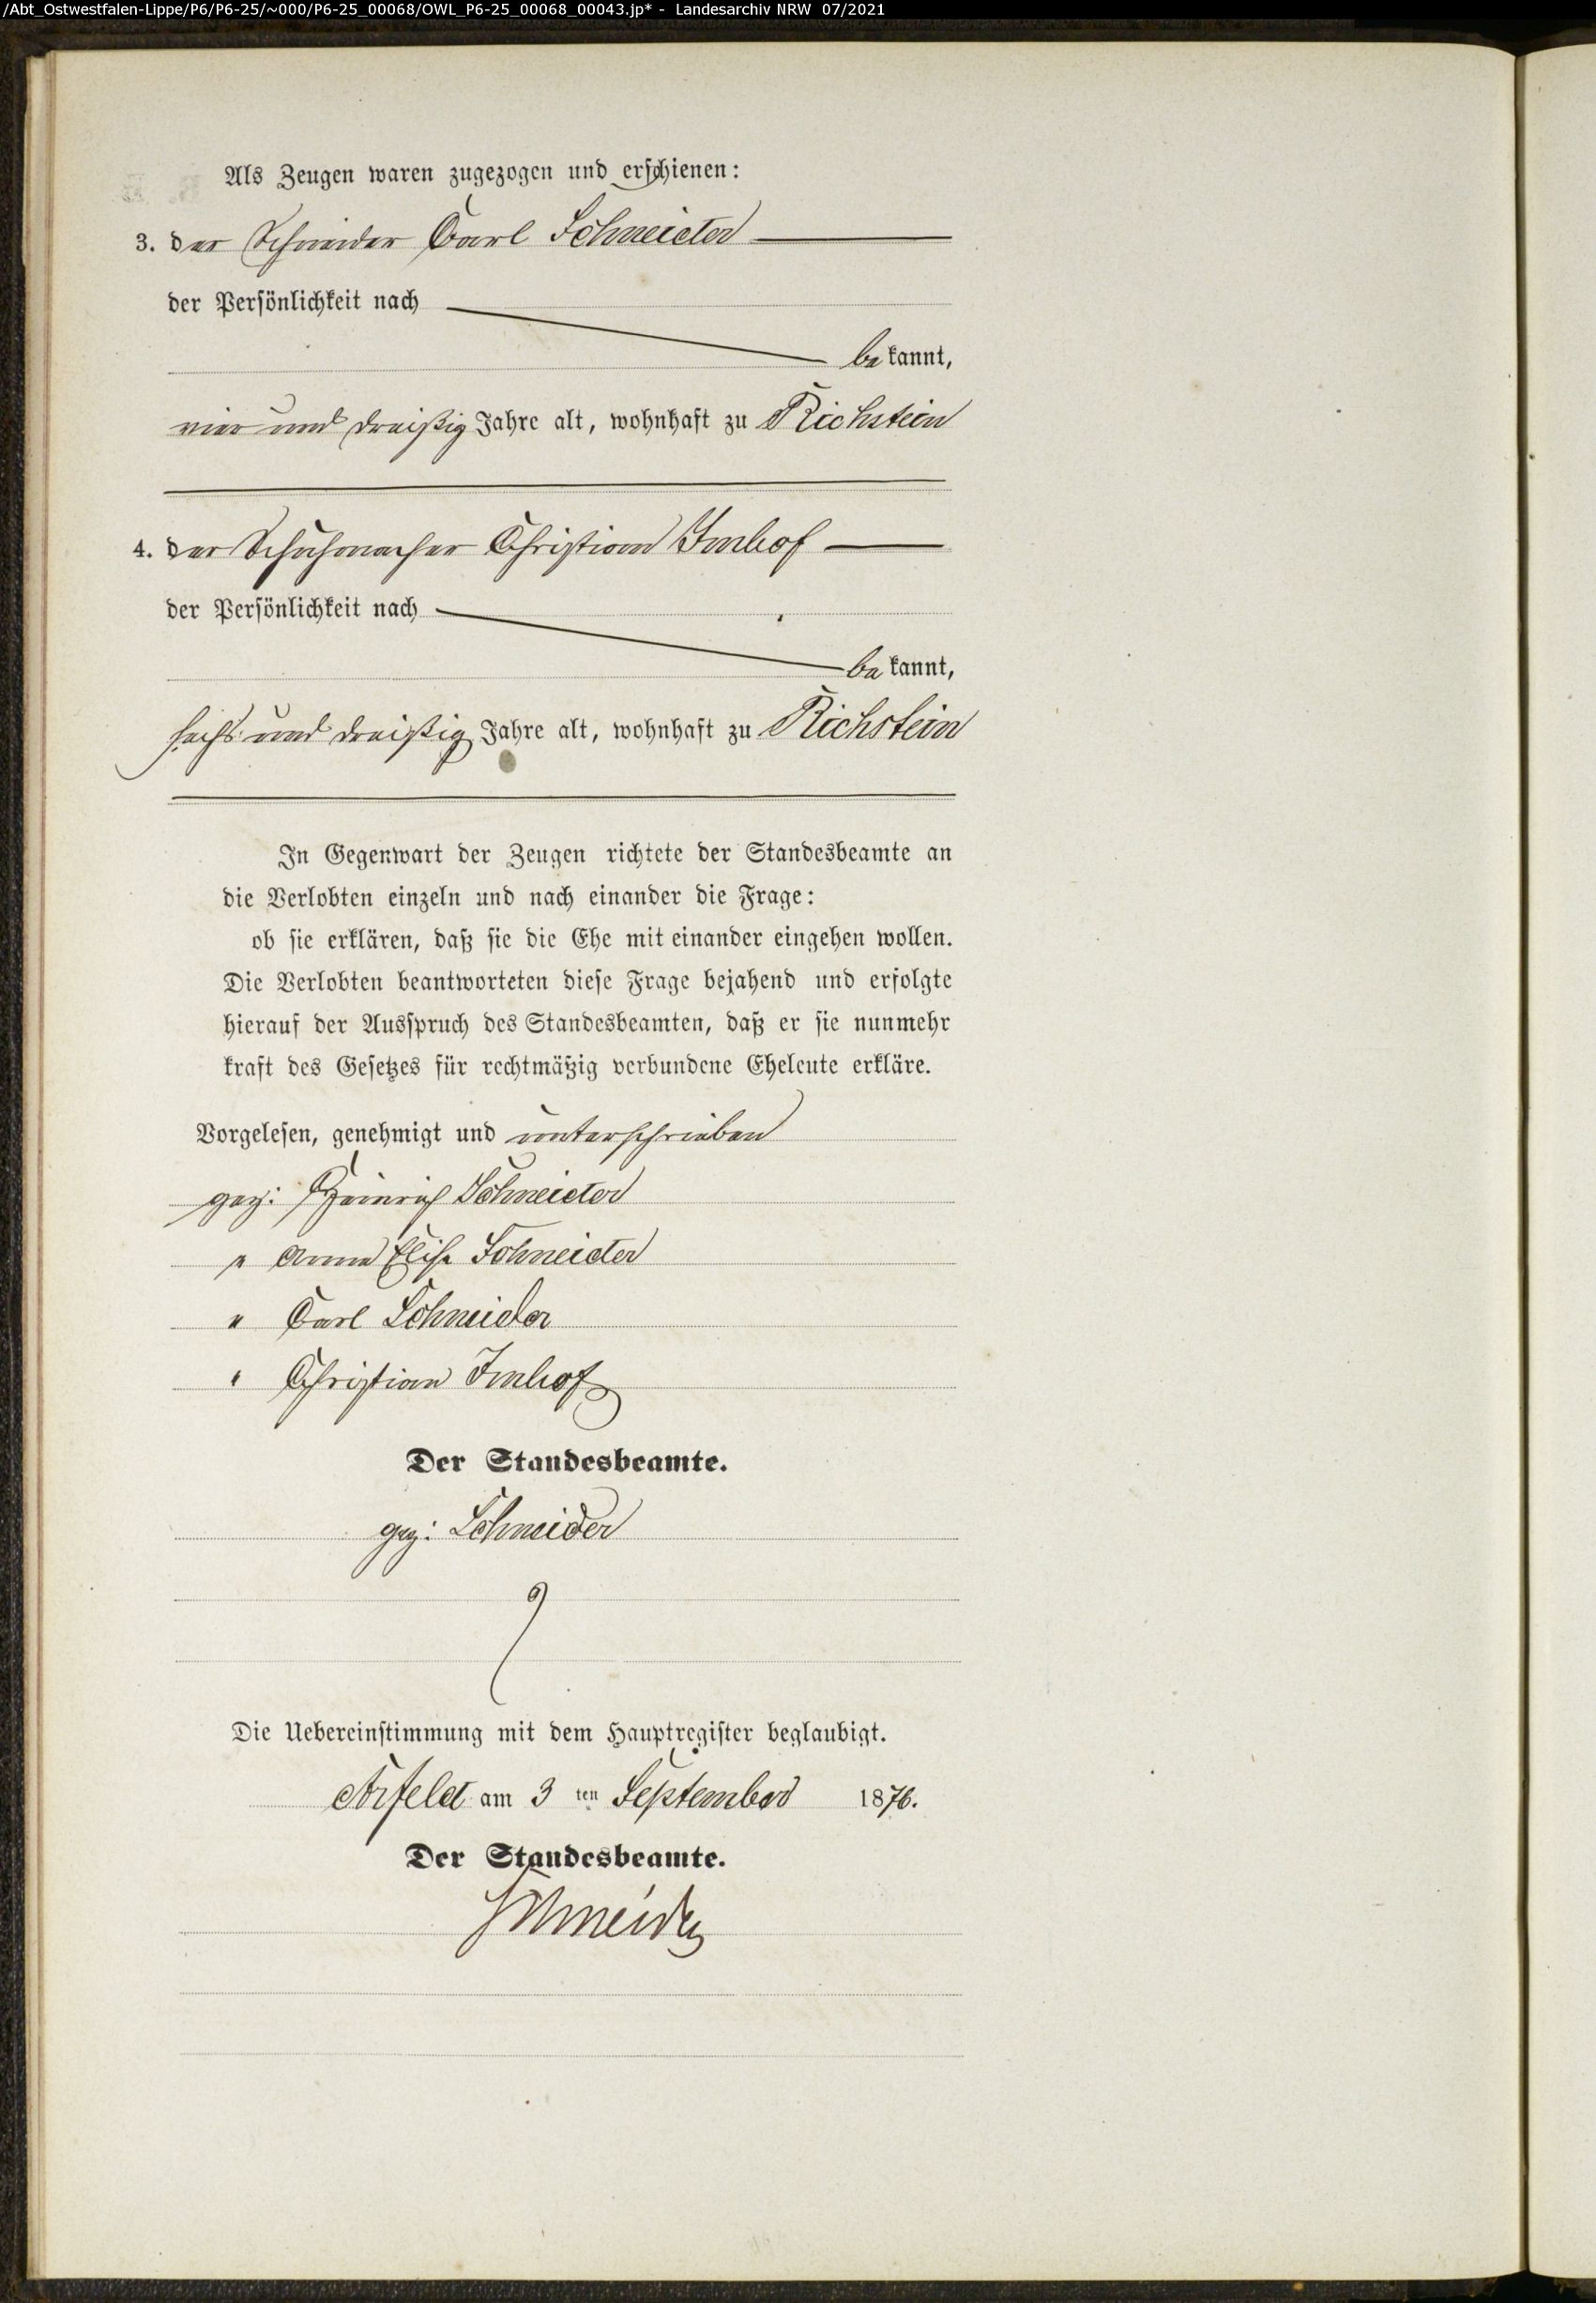 /Abt_Ostwestfalen-Lippe/P6/P6-25/~000/P6-25_00068/OWL_P6-25_00068_00043.jp* - Landesarchiv NRW 07/2021
Als Zeugen waren zugezogen und erschienen:
3. der Schneider Carl Schneider
der Persönlichkeit nach
bekannt,
vier und dreißig Jahre alt, wohnhaft zu Richstein
4. der Schuhmacher Christian Imhof
der Persönlichkeit nach
bekannt,
sechs und dreißig Jahre alt, wohnhaft zu Richstein
In Gegenwart der Zeugen richtete der Standesbeamte an
die Verlobten einzeln und nach einander die Frage:
ob sie erklären, daß sie die Ehe mit einander eingehen wollen.
Die Verlobten beantworteten diese Frage bejahend und erfolgte
hierauf der Ausspruch des Standesbeamten, daß er sie nunmehr
kraft des Gesetzes für rechtmäßig verbundene Eheleute erkläre.
Vorgelesen, genehmigt und unterschrieben
gez: Heinrich Schneider
" Anna Elise Schneider
" Carl Schneider
" Christian Imhof
Der Standesbeamte.
gez: Schneider
Die Uebereinstimmung mit dem Hauptregister beglaubigt.
Arfeld am 3 ten September 1876.
Der Standesbeamte.
Schneider